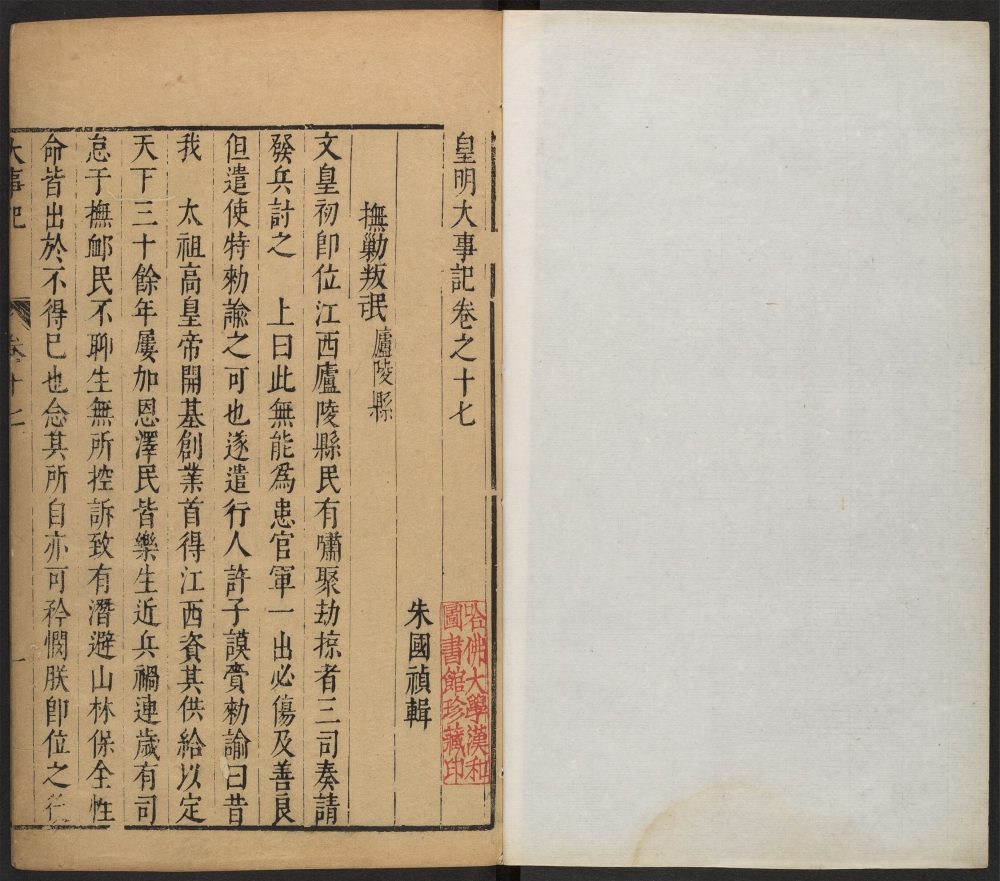 皇明大事記卷之十七
哈佛大學漢和
圖書館珍藏印
朱國禎輯
撫勦叛氓 廬陵縣
文皇初卽位江西廬陵縣民有嘯聚劫掠者三司奏請
發兵討之　上曰此無能爲患官軍一出必傷及善良
但遣使特勑諭之可也遂遣行人許子謨賫勑諭曰昔
我　太祖高皇帝開基創業首得江西資其供給以定
天下三十餘年屢加恩澤民皆樂生近兵禍連歲有司
怠于撫衈民不聊生無所控訴致有潛避山林保全性
命皆出於不得已也念其所自亦可矜憫朕卽位之後
大事記 卷十七 一